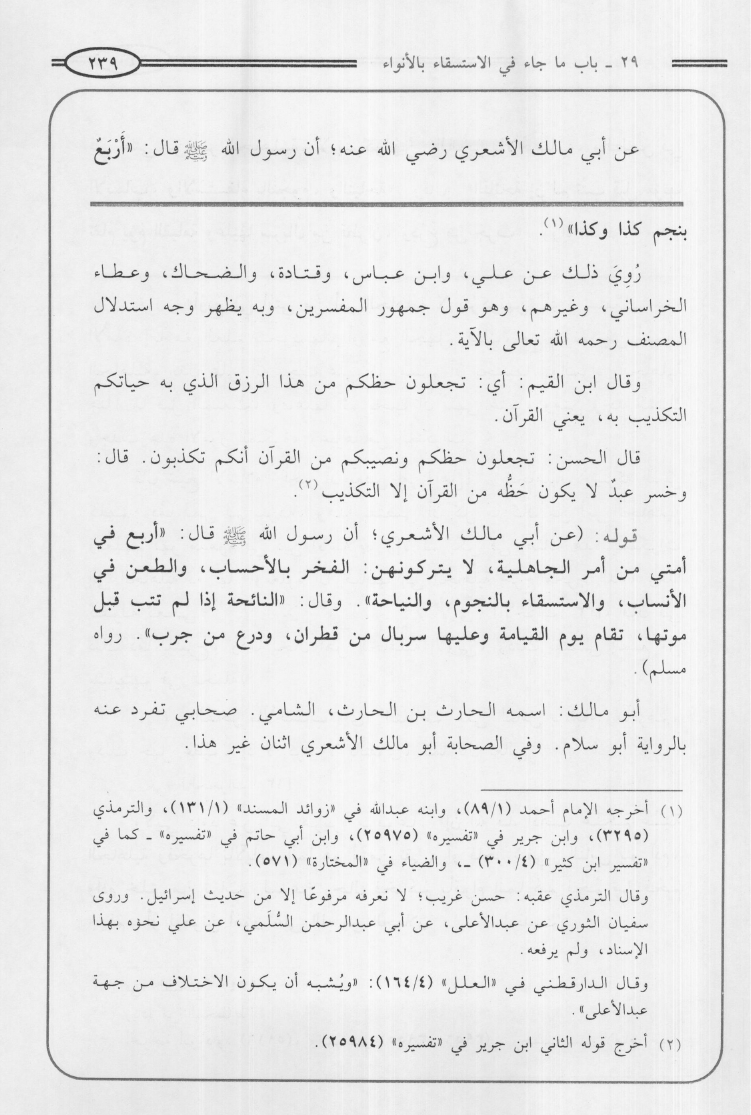 ٢٩ ـ باب ما جاء في الاستسقاء بالأنواء
٢٣٩
عن أبي مالك الأشعري رضي الله عنه؛ أن رسول الله ﷺ قال: «أَرْبَعٌ
بنجم كذا وكذا»(١).
رُوِيَ ذلك عن علي، وابن عباس، وقتادة، والضحاك، وعطاء
الخراساني، وغيرهم، وهو قول جمهور المفسرين، وبه يظهر وجه استدلال
المصنف رحمه الله تعالى بالآية.
وقال ابن القيم: أي: تجعلون حظكم من هذا الرزق الذي به حياتكم
التكذيب به، يعني القرآن.
قال الحسن: تجعلون حظكم ونصيبكم من القرآن أنكم تكذبون. قال:
وخسر عبدٌ لا يكون حَظُّه من القرآن إلا التكذيب(٢).
قوله: (عن أبي مالك الأشعري؛ أن رسول الله ﷺ قال: «أربع في
أمتي من أمر الجاهلية، لا يتركونهن: الفخر بالأحساب، والطعن في
الأنساب، والاستسقاء بالنجوم، والنياحة». وقال: «النائحة إذا لم تتب قبل
موتها، تقام يوم القيامة وعليها سربال من قطران، ودرع من جرب». رواه
مسلم).
أبو مالك: اسمه الحارث بن الحارث، الشامي. صحابي تفرد عنه
بالرواية أبو سلام. وفي الصحابة أبو مالك الأشعري اثنان غير هذا.
(١) أخرجه الإمام أحمد (٨٩/١)، وابنه عبدالله في «زوائد المسند» (١٣١/١)، والترمذي
(٣٢٩٥)، وابن جرير في «تفسيره» (٢٥٩٧٥)، وابن أبي حاتم في «تفسيره» ـ كما في
«تفسير ابن كثير» (٣٠٠/٤) ـ، والضياء في «المختارة» (٥٧١).
وقال الترمذي عقبه: حسن غريب؛ لا نعرفه مرفوعًا إلا من حديث إسرائيل. وروى
سفيان الثوري عن عبدالأعلى، عن أبي عبدالرحمن السُّلَمي، عن علي نحوَه بهذا
الإسناد، ولم يرفعه.
وقال الدارقطني في «العلل» (١٦٤/٤): «ويُشبه أن يكون الاختلاف من جهة
عبدالأعلى».
(٢) أخرج قوله الثاني ابن جرير في «تفسيره» (٢٥٩٨٤).